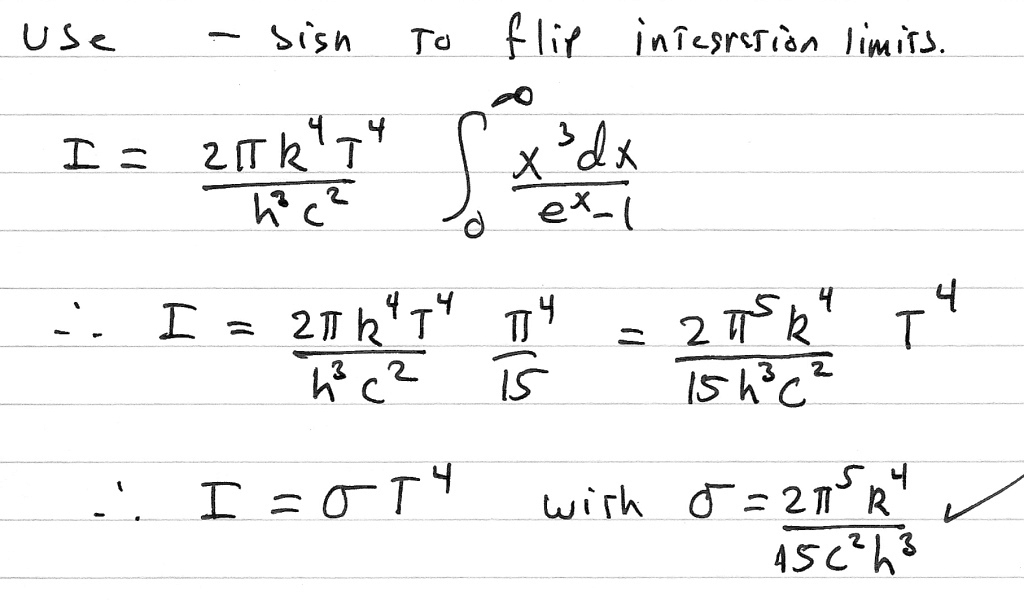 Use - sign to flip integration limits.
I = 2πk⁴T⁴/h³c² ∫₀^∞ x³dx/eˣ-1
∴ I = 2πk⁴T⁴/h³c² π⁴/15 = 2π⁵k⁴/15h³c² T⁴
∴ I = σT⁴ with σ = 2π⁵k⁴/15c²h³ ✓